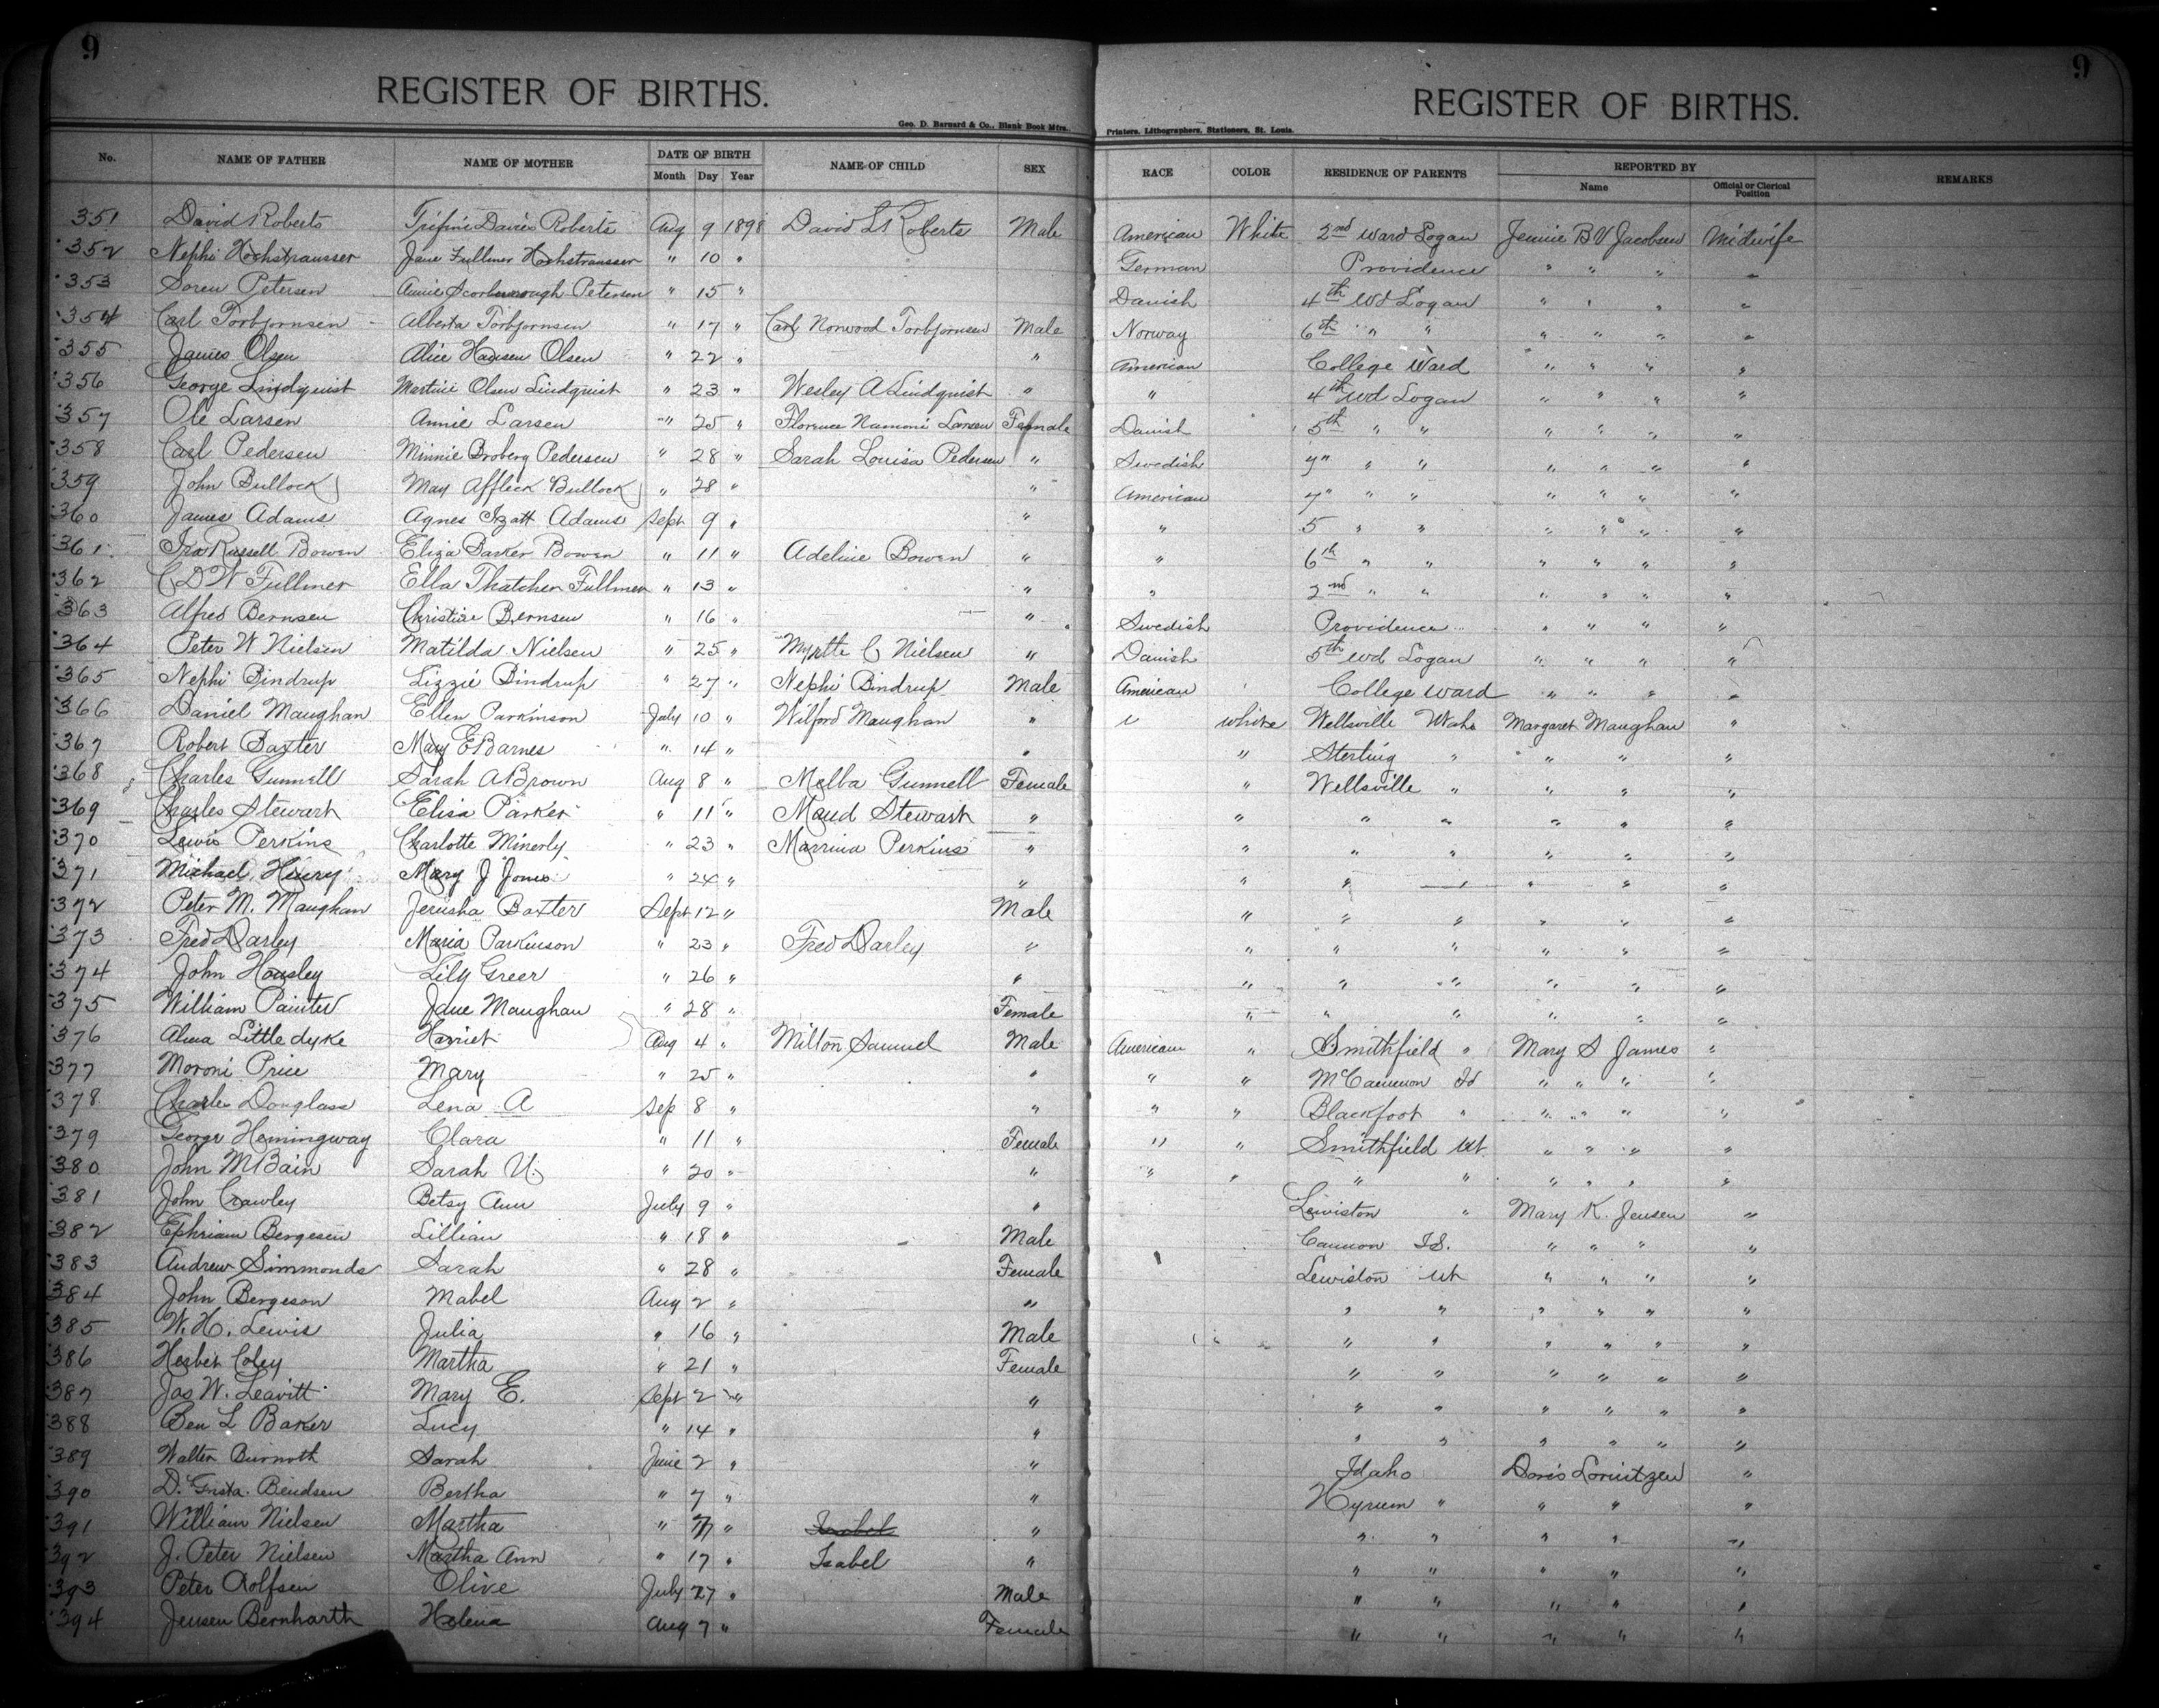 9 9
REGISTER OF BIRTHS. REGISTER OF BIRTHS.
Geo. D. Barnard & Co., Blank Book Mfrs., Printers, Lithographers, Stationers, St. Louis.
No. NAME OF FATHER NAME OF MOTHER DATE OF BIRTH Month Day Year NAME OF CHILD SEX RACE COLOR RESIDENCE OF PARENTS REPORTED BY Name Official or Clerical Position REMARKS
351 David Roberts Trifini Davies Roberts Aug 9 1898 David L Roberts Male American White 2nd Ward Logan Jennie B V Jacobsen Midwife
352 Nephi Hochstrausser Jane Fullmer Hochstrausser " 10 " German Providence " " " "
353 Soren Petersen Annie Scorborough Petersen " 15 " Danish 4th Wd Logan " " " "
354 Carl Torbjornsen Alberta Torbjornsen " 17 " Carl Norwood Torbjornsen Male Norway 6th " " " " " "
355 James Olsen Alice Hansen Olsen " 22 " " American College Ward " " " "
356 George Lindquist Martini Olsen Lindquist " 23 " Wesley A Lindquist " " 4th Wd Logan " " " "
357 Ole Larsen Annie Larsen " 25 " Florence Namoni Larsen Female Danish 5th " " " " " "
358 Carl Pedersen Minnie Broberg Pedersen " 28 " Sarah Louisa Pedersen " Swedish 7" " " " " " "
359 John Bullock May Affleck Bullock " 28 " " American 7" " " " " " "
360 James Adams Agnes Izatt Adams Sept 9 " " " 5 " " " " " "
361 Ira Russell Bowen Eliza Barker Bowen " 11 " Adeline Bowen " " 6th " " " " " "
362 C D W Fullmer Ella Thatcher Fullmer " 13 " " " 2nd " " " " " "
363 Alfred Bernsen Christine Bernsen " 16 " " Swedish Providence " " " "
364 Peter W Nielsen Matilda Nielsen " 25 " Myrtle C Nielsen " Danish 5th Wd Logan " " " "
365 Nephi Bindrup Lizzie Bindrup " 27 " Nephi Bindrup Male American College Ward " " " "
366 Daniel Maughan Ellen Parkinson July 10 " Wilford Maughan " " White Wellsville Utah Margaret Maughan "
367 Robert Baxter Mary E Barnes " 14 " " " Sterling " " " "
368 Charles Gunnell Sarah A Brown Aug 8 " Melba Gunnell Female " Wellsville " " " "
369 Charles Stewart Elisa Parker " 11 " Maud Stewart " " " " " " "
370 Lewis Perkins Charlotte Minerly " 23 " Marrina Perkins " " " " " " "
371 Michael Henry Mary J Jones " 24 " " " " " " " "
372 Peter M. Maughan Jerusha Baxter Sept 12 " Male " " " " " "
373 Fred Darley Maria Parkinson " 23 " Fred Darley " " " " " " "
374 John Housley Lily Greer " 26 " " " " " " " "
375 William Painter Jane Maughan " 28 " Female " " " " " "
376 Alma Littledyke Harriet Aug 4 " Milton Samuel Male American " Smithfield " Mary S James "
377 Moroni Price Mary " 25 " " " " McCammon Id " " " "
378 Charles Douglass Lena A Sep 8 " " " " Blackfoot " " " " "
379 George Hemingway Clara " 11 " Female " " Smithfield Ut " " " "
380 John McBain Sarah U. " 20 " " " " " " " " " "
381 John Crawley Betsy Ann July 9 " " Lewiston " Mary K. Jensen "
382 Ephriam Bergesen Lillian " 18 " Male Cannon Id. " " " "
383 Andrew Simmonds Sarah " 28 " Female Lewiston Ut " " " "
384 John Bergeson Mabel Aug 2 " " " " " " " "
385 W. H. Lewis Julia " 16 " Male " " " " " "
386 Herbert Coley Martha " 21 " Female " " " " " "
387 Jas W. Leavitt Mary E. Sept 2 " " " " " " " "
388 Ben L Baker Lucy " 14 " " " " " " " "
389 Walter Sarah June 2 " " Idaho Doris Lornitzen "
390 D. Bendsen Bertha " 7 " " Hyrum " " " "
391 William Nielsen Martha " 7 " Isabel " " " " " "
392 J. Peter Nielsen Martha Ann " 17 " Isabel " " " " " "
393 Peter Rolfsen Olive July 27 " Male " " " " "
394 Jensen Bernharth Helena Aug 7 " Female " " " " "